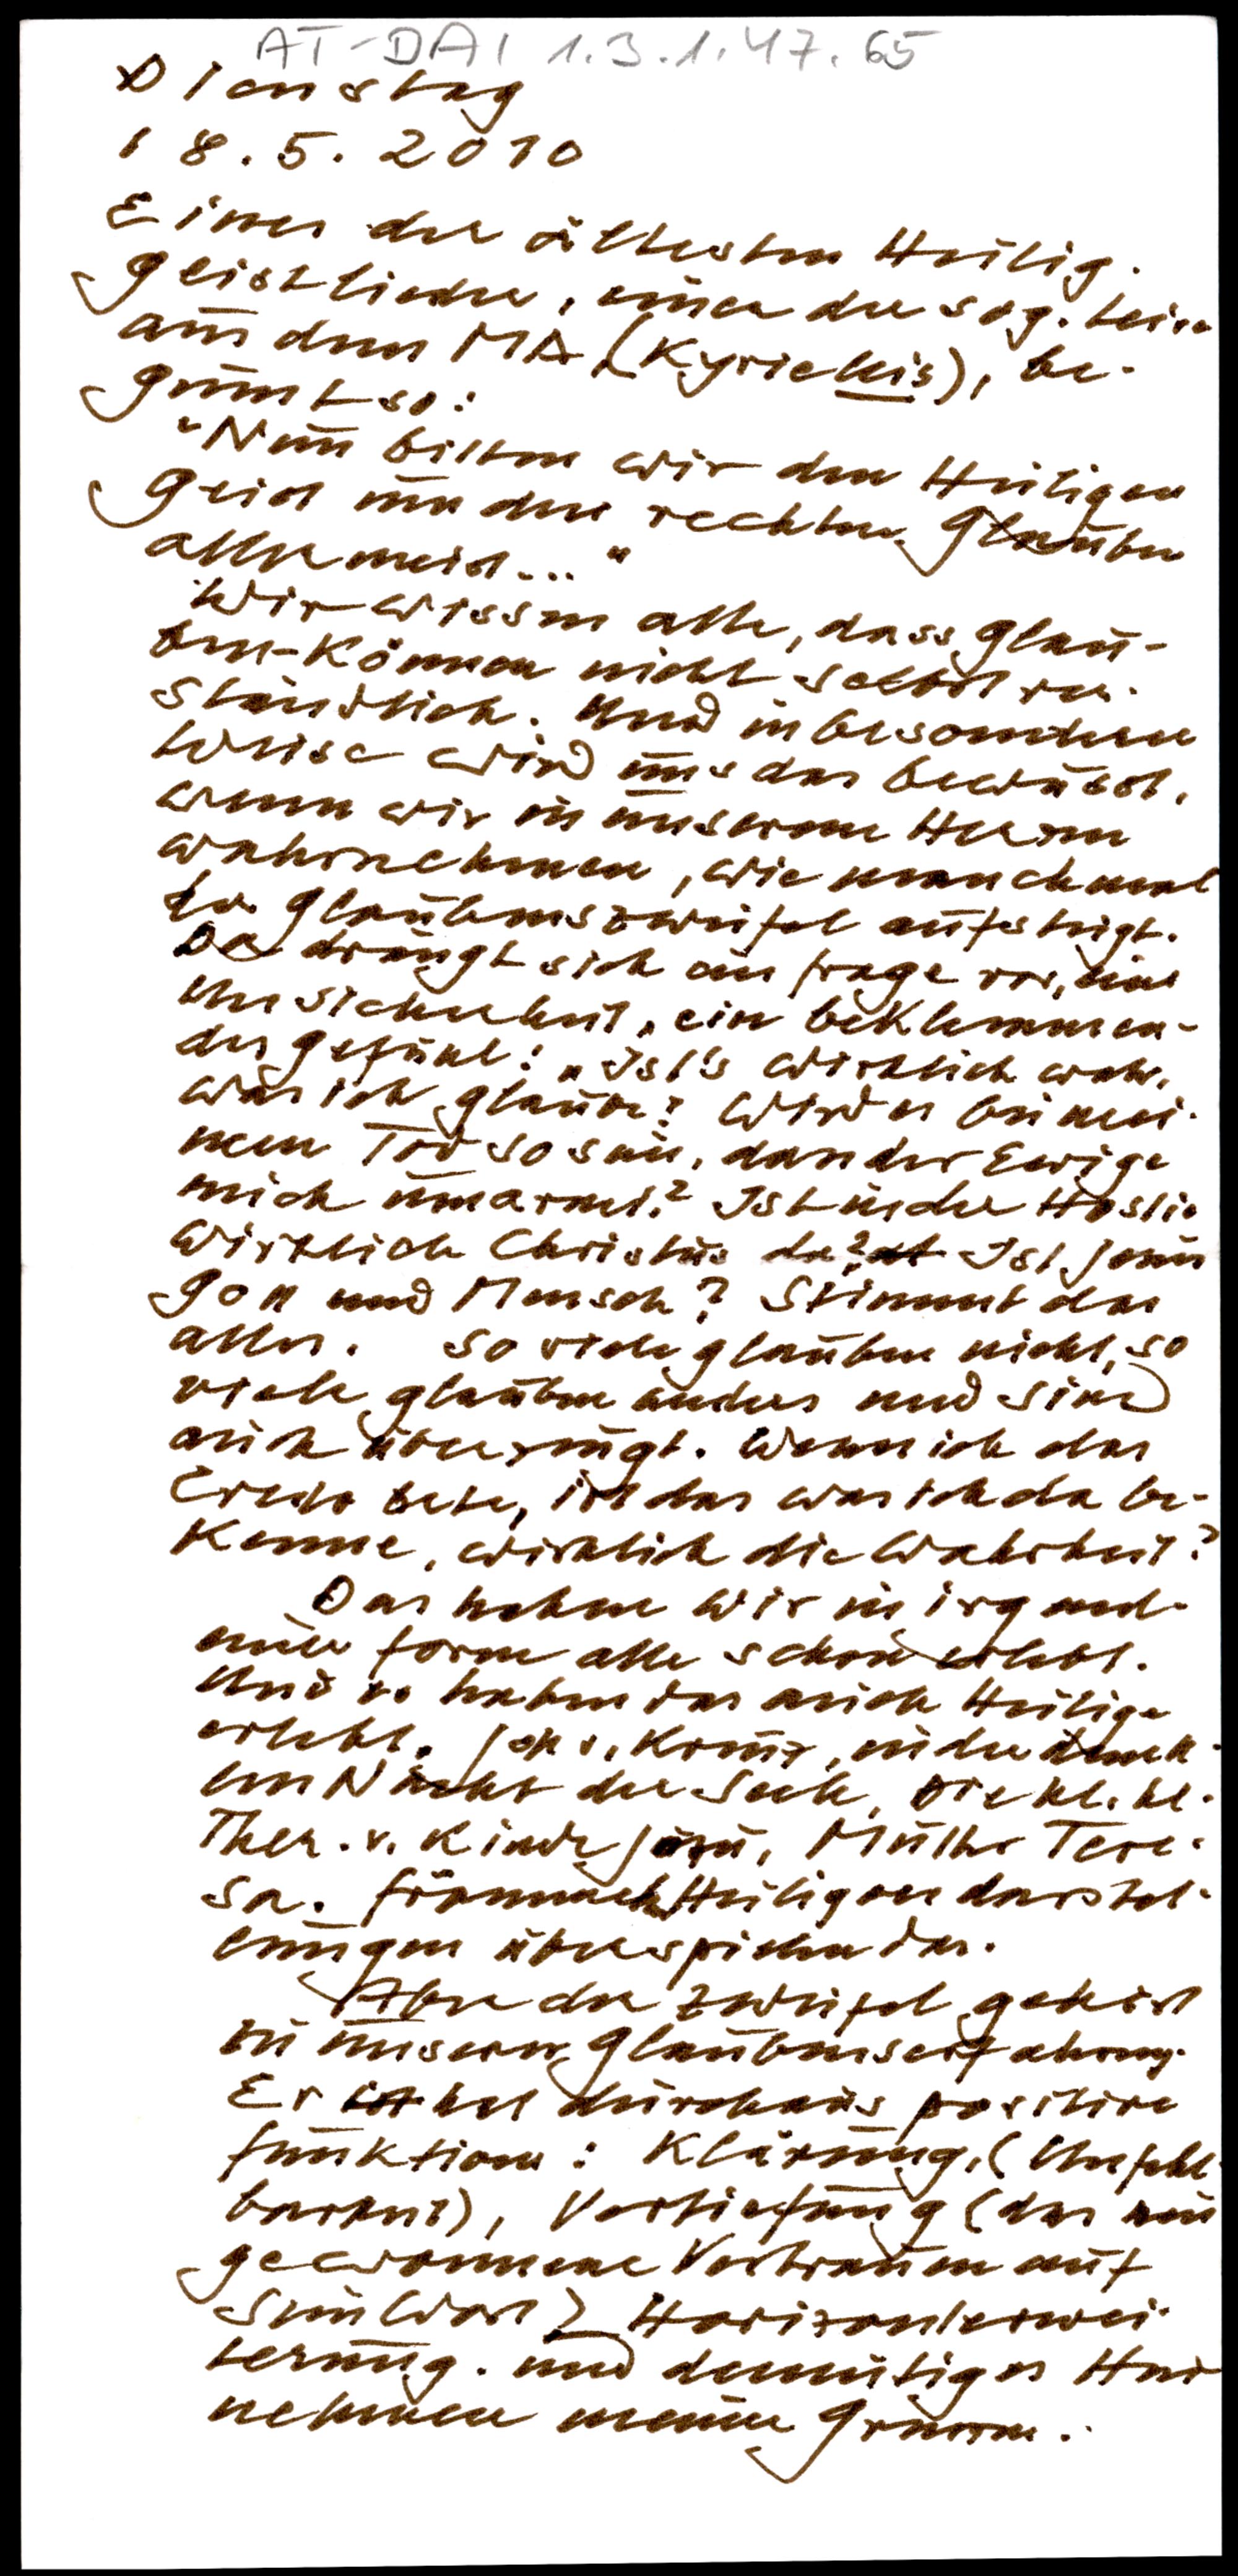 AT-DAI 1.3.1.47.65
Dienstag
18.5.2010
Eines der ältesten Heilig-
geistlieder, eines der sog. Leise
aus dem MA (Kyrieleis), be-
ginnt so:
"Nun bitten wir den Heiligen
Geist um den rechten Glauben
allermeist..."
Wir wissen alle, dass Glau-
ben-Können nicht selbstver-
ständlich. Und in besonderer
Weise wird uns das bewusst,
wenn wir in unserem Herzen
wahrnehmen, wie manchmal
der Glaubenszweifel aufsteigt.
Da drängt sich ein Frage vor, eine
Unsicherheit, ein beklemmen-
des Gefühl: "Ist's wirklich wahr,
was ich glaube? Wird es bei mei-
nem Tod so sein, dass der Ewige
mich umarmt? Ist in der Hostie
wirklich Christus da? Ist Jesus
Gott und Mensch? Stimmt das
alles. So viele glauben nicht, so
viele glauben anders und sind
auch überzeugt. Wenn ich das
Credo bete, ist das was ich da be-
kenne, wirklich die Wahrheit?
Das haben wir in irgend-
einer Form alle schon erlebt.
Und es haben das auch Heilige
erlebt. Joh v. Kreuz, in der dunk-
len Nacht der Seele, die kl. hl.
Ther. v. Kinde Jesu, Mutter Tere-
sa. Frömmelnde Heiligendarstel-
lungen überspielen das.
Aber der Zweifel gehört
zu unserer Glaubenserfahrung.
Er hat durchaus positive
Funktion: Klärung, (Unfehl-
barkeit), Vertiefung (das neu
gewonnene Vertrauen auf
Sein Wort) Horizonterwei-
terung. und demütiges Hin
nehmen meiner Grenzen.